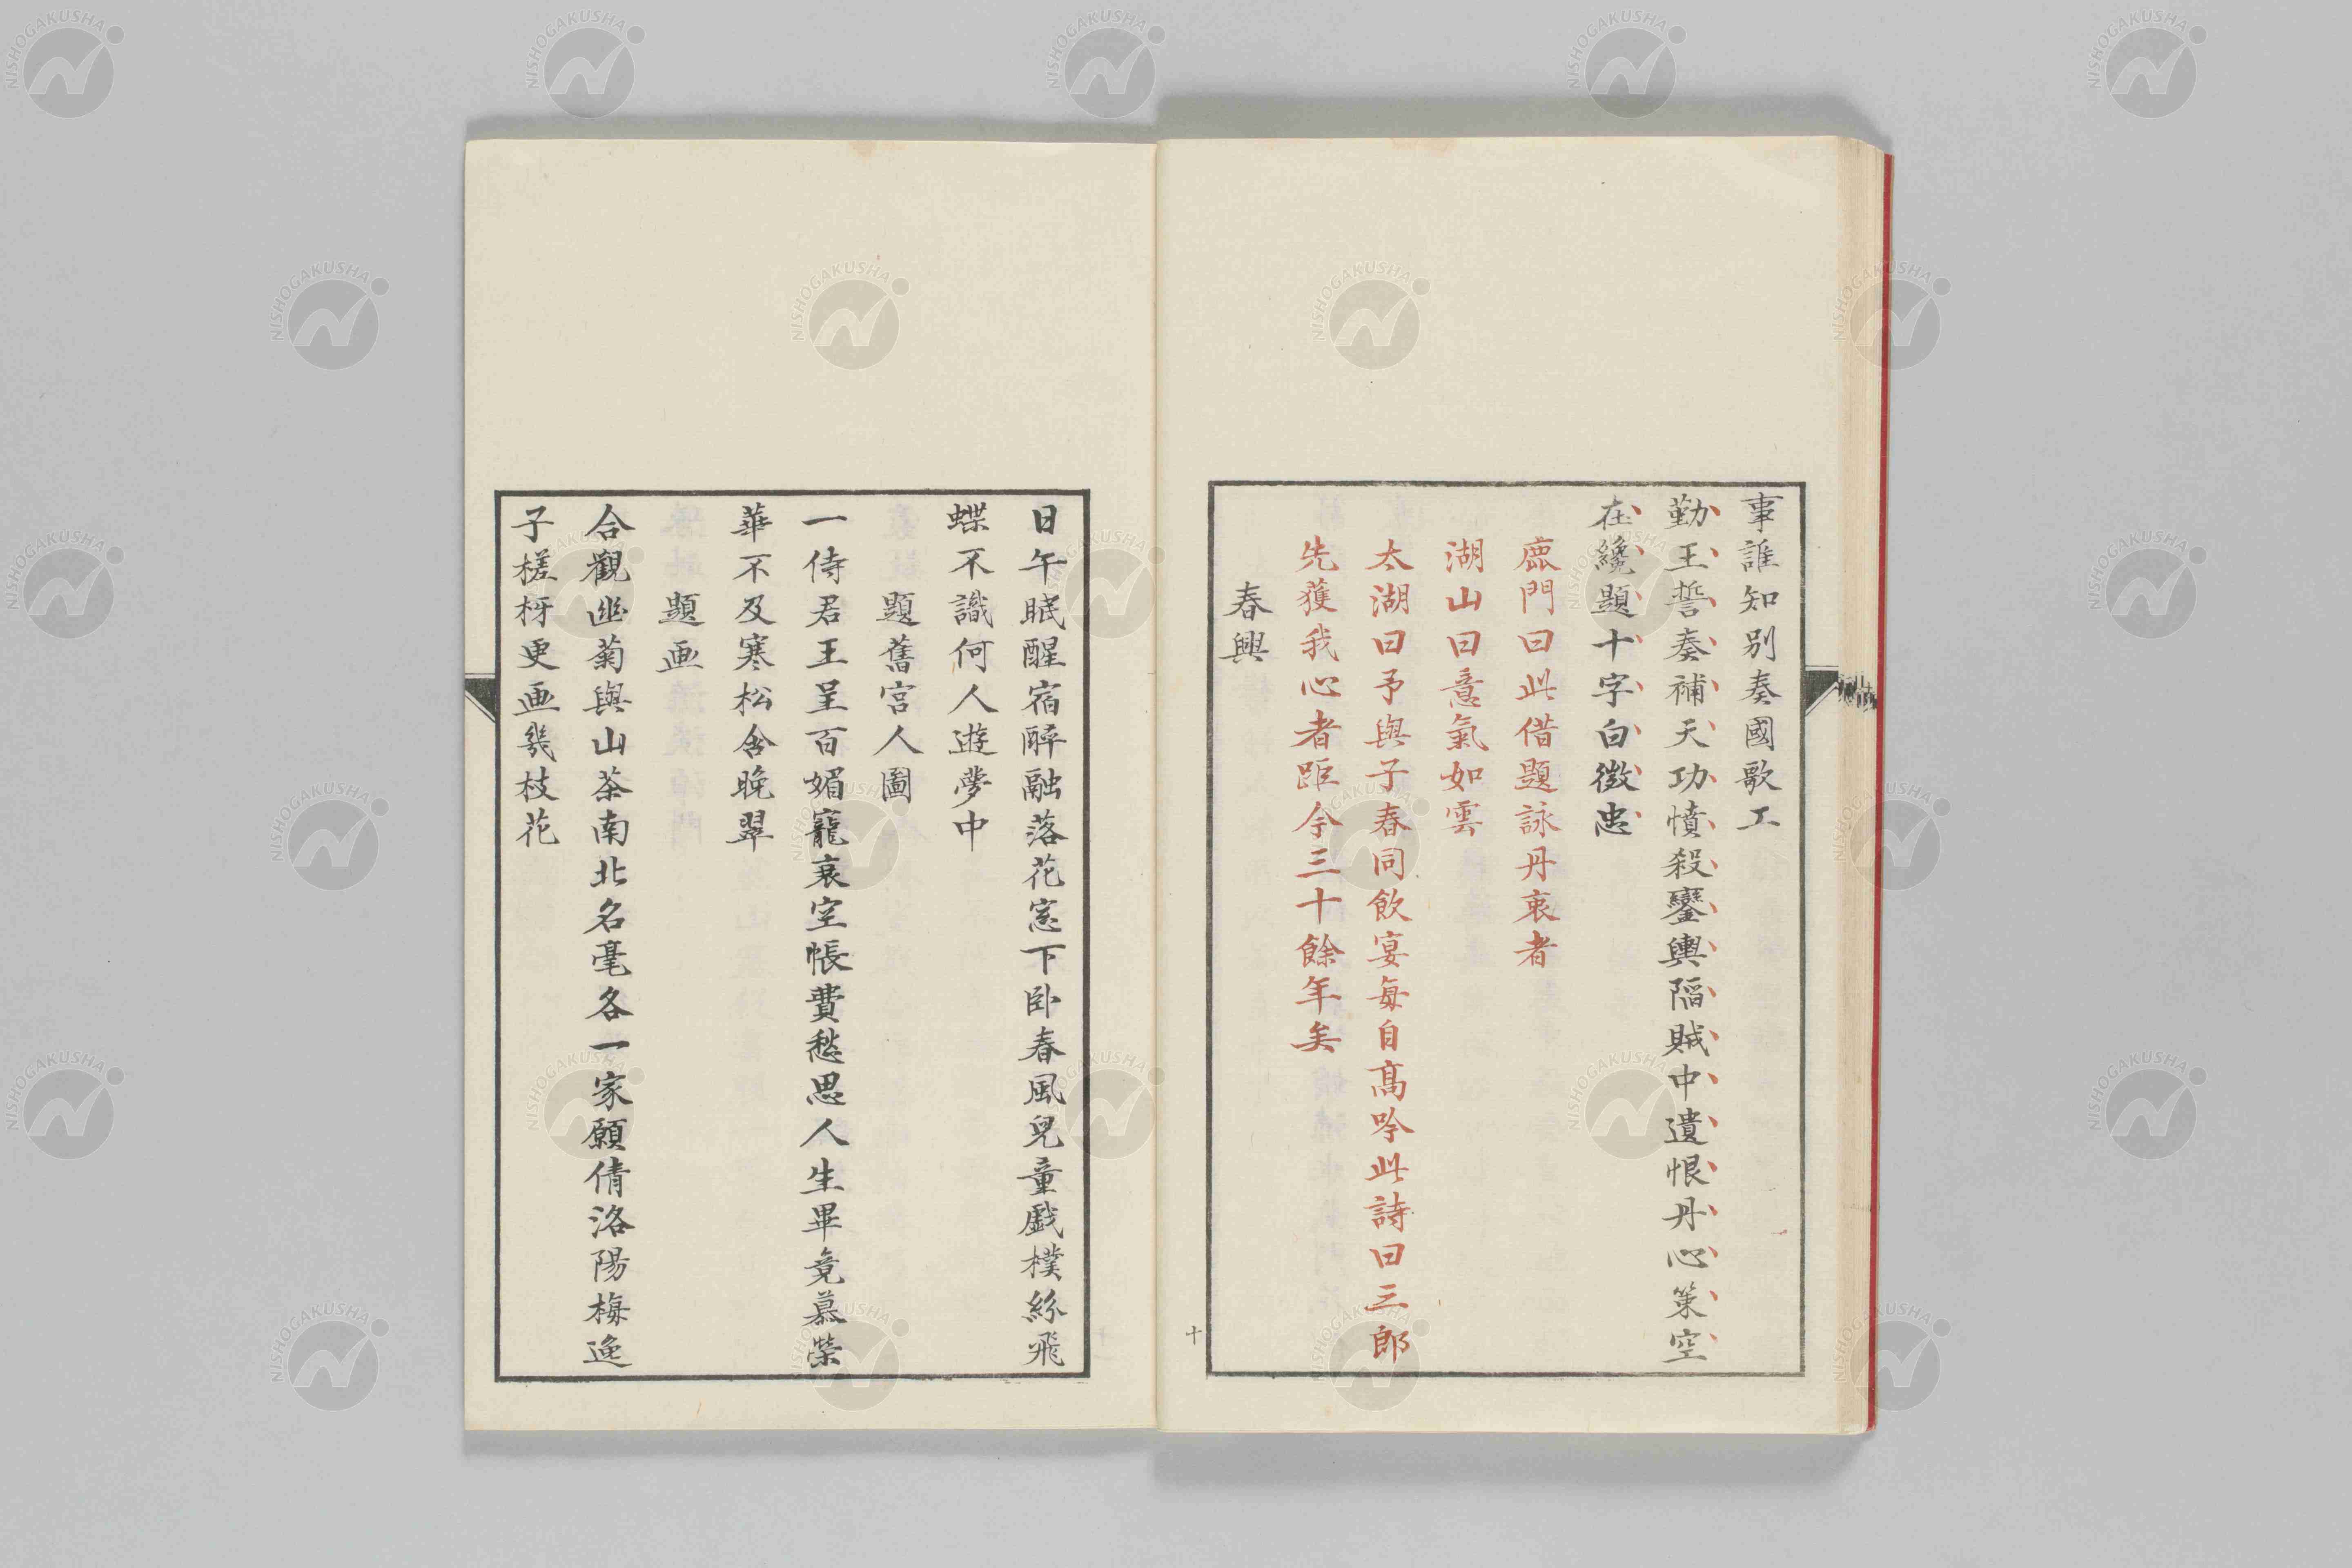 事誰知別奏國歌工
勤王誓奏補天功憤殺鑾輿陷賊中遺恨丹心策空
在纔題十字白微忠
鹿門曰此借題詠丹衷者
湖山曰意氣如雲
太湖曰予與子春同飲宴每自髙吟此詩曰三郎
先獲我心者距今三十餘年矣
春興
十
日午眠醒宿醉融落花窓下卧春風兒童戯樸絲飛
蝶不識何人遊夢中
題舊宮人圖
一侍君王呈百媚寵衰空帳費愁思人生畢竟慕榮
華不及寒松含晚翠
題画
合觀幽菊與山茶南北名毫各一家願倩洛陽梅逸
子槎枒更画幾枝花
NISHOGAKUSHA